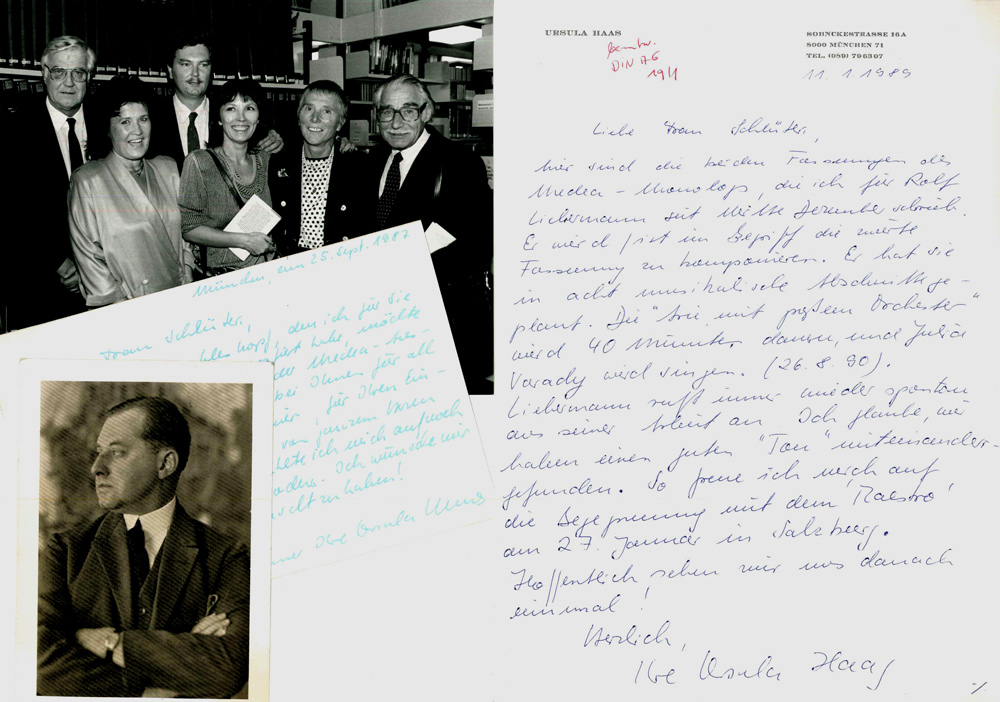 URSULA HAAS
SOHNCKESTRASSE 16A
8000 MÜNCHEN 71
TEL. (089) 796307
DIN A6
19/1
11. 1. 1989
Liebe Frau Schlüter,
hier sind die beiden Fassungen des
Medea-Monologs, die ich für Rolf
Liebermann seit Mitte Dezember schrieb.
Er wird / ist im Begriff die zweite
Fassung zu komponieren. Er hat sie
in acht musikalische Abschnitte ge-
plant. Die "Arie mit großem Orchester"
wird 40 Minuten dauern, und Julia
Varady wird singen. (26. 8. 90).
Liebermann ruft immer wieder spontan
aus seiner Arbeit an. Ich glaube, wir
haben einen guten "Ton" miteinander-
gefunden. So freue ich mich auf
die Begegnung mit dem 'Maestro'
am 27. Januar in Salzburg.
Hoffentlich sehen wir uns danach
einmal!
Herzlich,
Ihre Ursula Haas
München, am 25. Sept. 1987
Frau Schlüter,
den ich für Sie
habe, möchte
der Medea-
bei Ihnen für all
für Ihren Ein-
von ganzem
ich mich auch noch
Ich wünsche mir
zu haben!
Ihre Ursula Haas